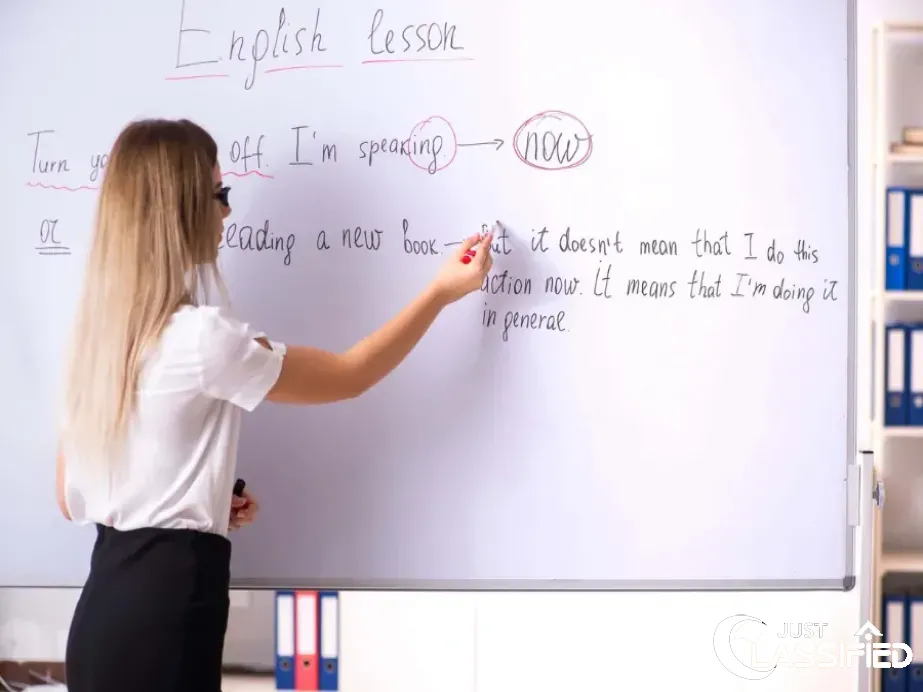 English lesson
Turn off. I'm speaking → now
or eading a new book. — But it doesn't mean that I do this
action now. It means that I'm doing it
in general.
JUST
CLASSIFIED